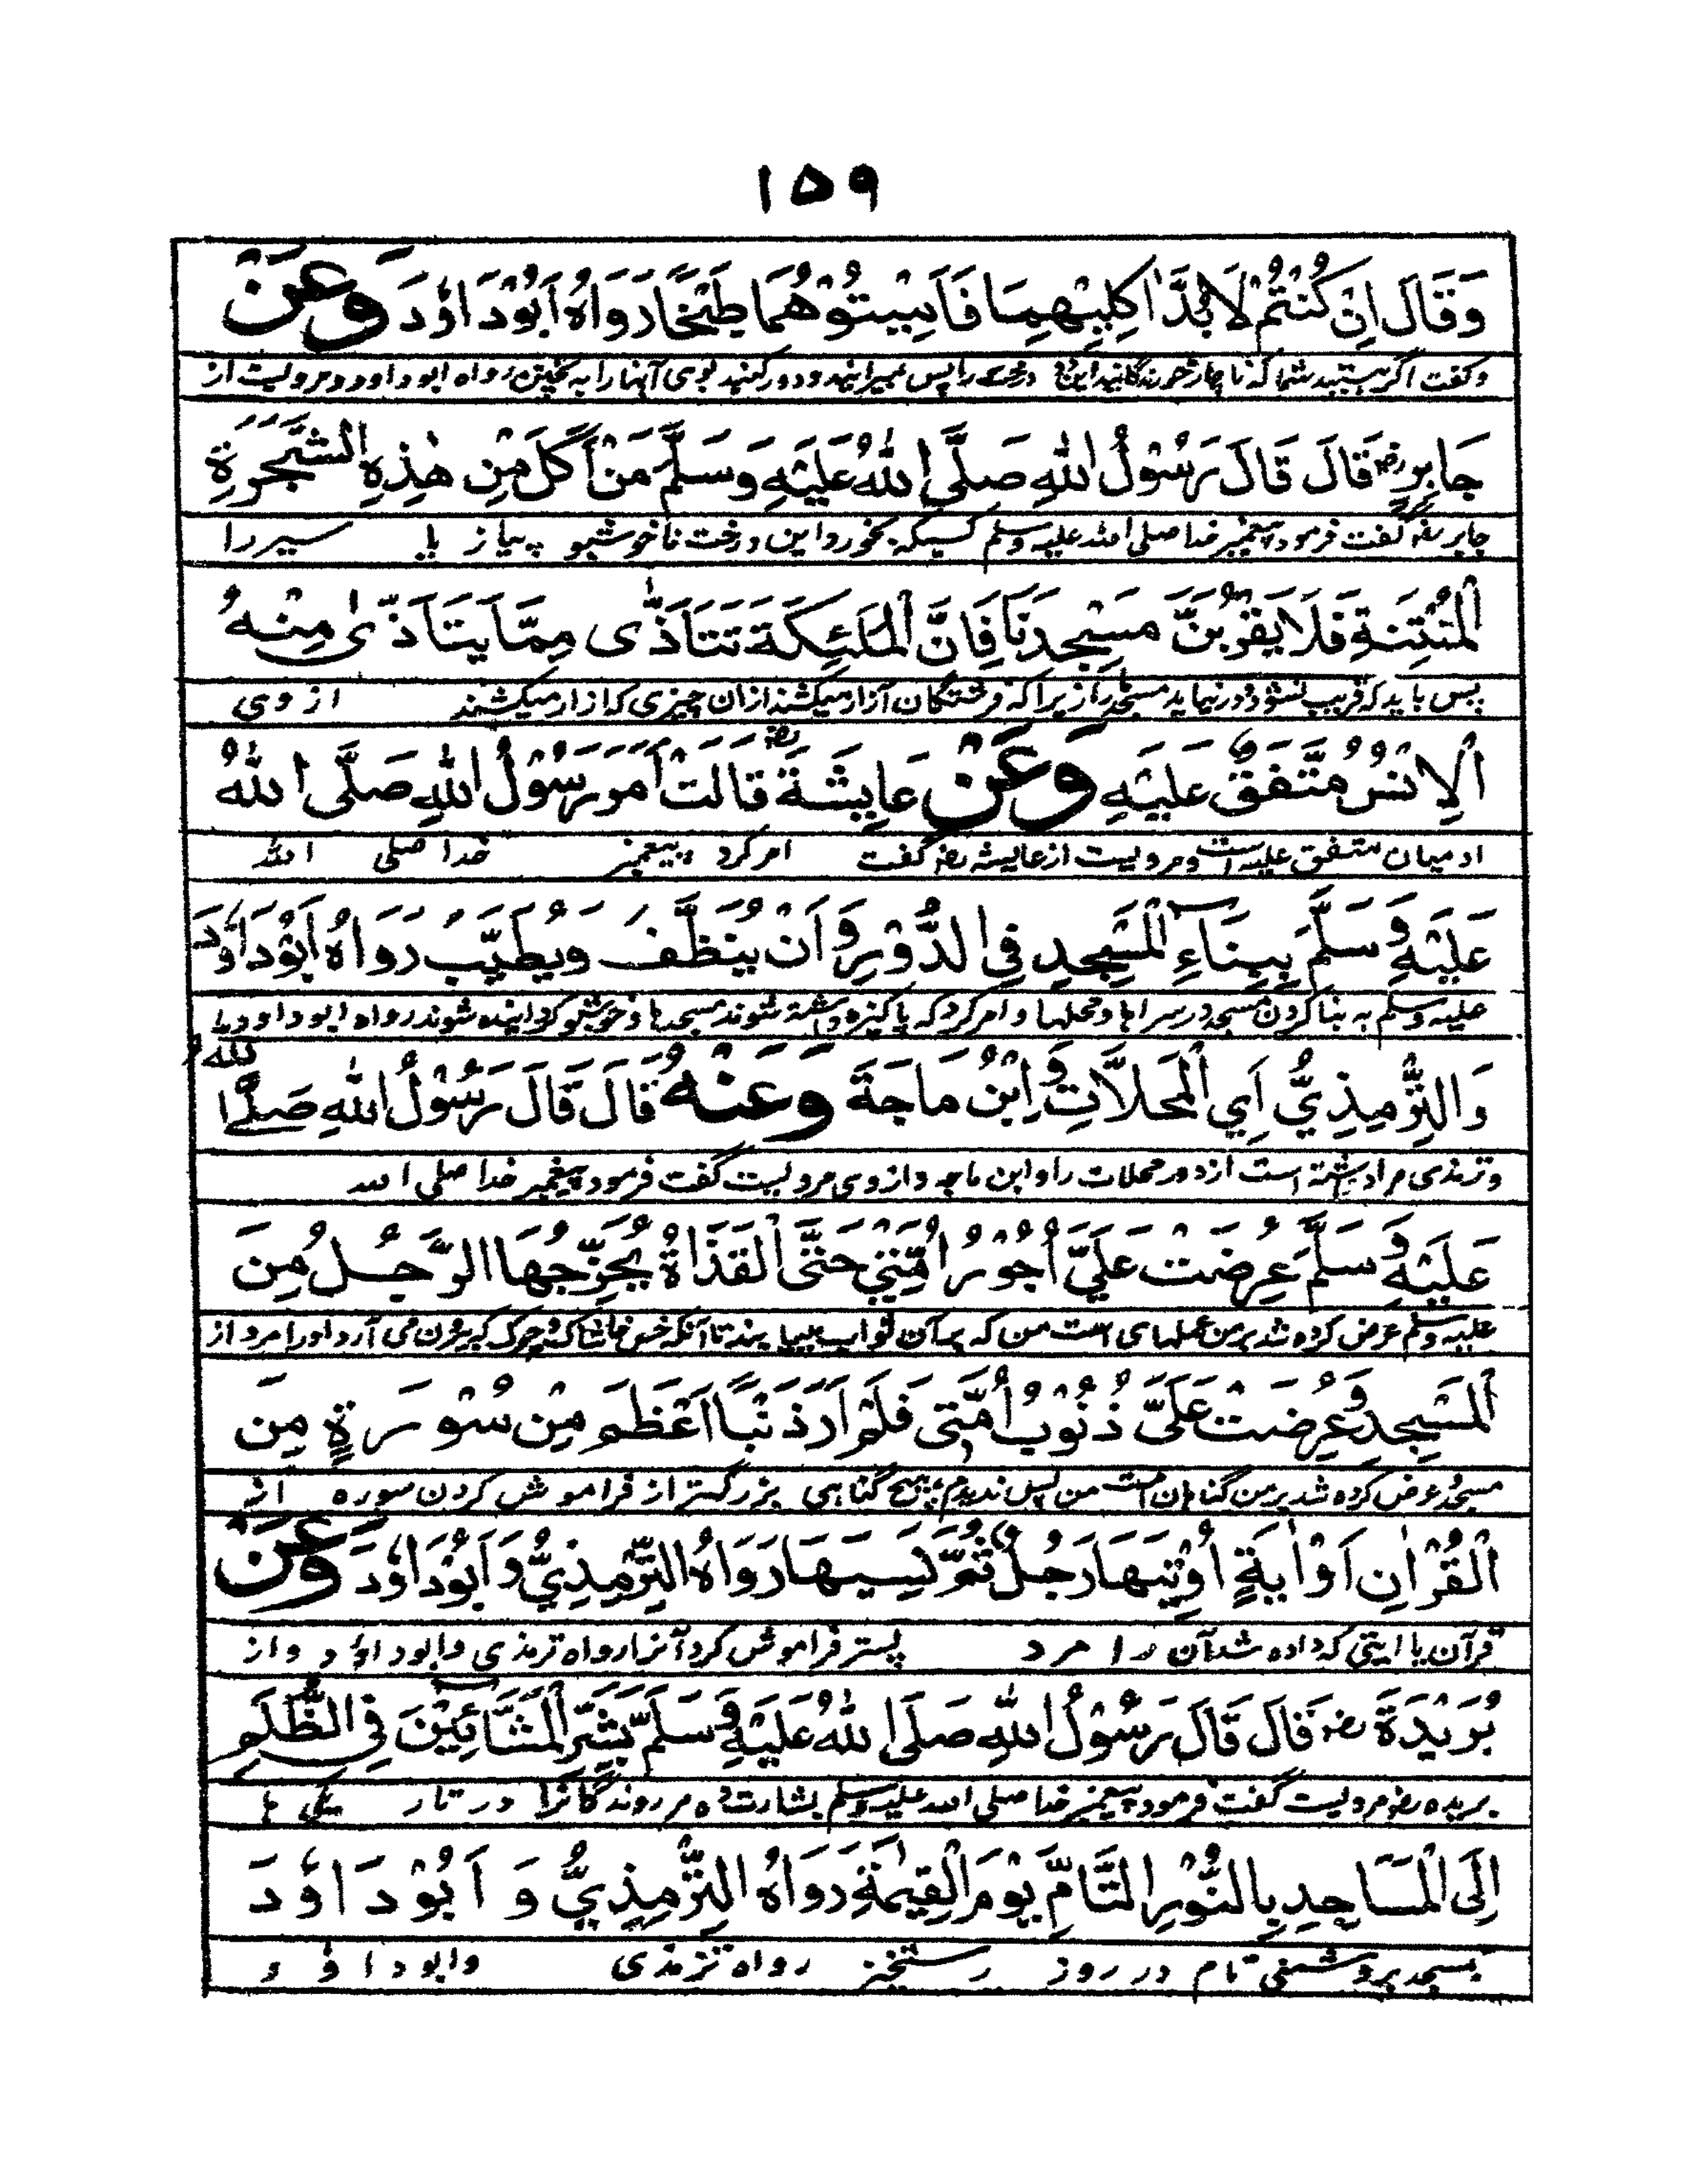 ١٥٩
وَقَالَ اِنْ كُنْتُمْ لَابُدَّ اٰكِلِيْهِمَا فَاَمِيْتُوْهُمَا طَبْخًا رَوَاهُ اَبُوْدَاوٗدَ وَعَنْ
وگفت اگر هستید شما که ناچار خورندگانید این را پس بمیرانید و دور کنید بوی آنها را به پختن رواه ابوداود و مرویست از
جَابِرٍ رض قَالَ قَالَ رَسُوْلُ اللهِ صَلَّى اللهُ عَلَيْهِ وَسَلَّمَ مَنْ اَكَلَ مِنْ هٰذِهِ الشَّجَرَةِ
جابر رض گفت فرمود پیغمبر خدا صلی الله علیه وسلم کسیکه بخورد این درخت ناخوشبو پیاز یا سیر را
الْمُنْتِنَةِ فَلَا يَقْرُبَنَّ مَسْجِدَنَا فَاِنَّ الْمَلٰئِكَةَ تَتَاَذّٰى مِمَّا يَتَاَذّٰى مِنْهُ
پس باید که قریب نشود و در نیاید مسجد ما را زیرا که فرشتگان آزار میکشند ازان چیزی که ازار میکشند از وی
الْاِنْسُ مُتَّفَقٌ عَلَيْهِ وَعَنْ عَايِشَةَ رض قَالَتْ اَمَرَ رَسُوْلُ اللهِ صَلَّى اللهُ
ادمیان متفق علیه است و مرویست از عایشه رض گفت امر کرد پیغمبر خدا صلی الله
عَلَيْهِ وَسَلَّمَ بِبِنَاءِ الْمَسْجِدِ فِي الدُّوْرِ وَاَنْ يُنَظَّفَ وَيُطَيَّبَ رَوَاهُ اَبُوْدَاوٗدَ
علیه وسلم به بنا کردن مسجد در سراها و محلها و امر کرد که پاکیزه داشته شوند مسجدها و خوشبو گردانیده شوند رواه ابوداود
وَالتِّرْمِذِيُّ اَيِ الْمَحَلَّاتِ وَابْنُ مَاجَةَ وَعَنْهُ قَالَ قَالَ رَسُوْلُ اللهِ صَلَّى اللهُ
وترمذی مراد داشته است از دور محلات را وابن ماجه واز وی مرویست گفت فرمود پیغمبر خدا صلی الله
عَلَيْهِ وَسَلَّمَ عُرِضَتْ عَلَيَّ اُجُوْرُ اُمَّتِيْ حَتَّى الْقَذَاةُ يُخْرِجُهَا الرَّجُلُ مِنَ
علیه وسلم عرض کرده شد بر من عملهای امت من که بدان ثواب بیابند تا آنکه خس خاشاک و چرک که بیرون می آرد او را مرد از
الْمَسْجِدِ وَعُرِضَتْ عَلَيَّ ذُنُوْبُ اُمَّتِيْ فَلَمْ اَرَ ذَنْبًا اَعْظَمَ مِنْ سُوْرَةٍ مِنَ
مسجد و عرض کرده شد بر من گناهان امت من پس ندیدم هیچ گناهی بزرگتر از فراموش کردن سوره از
الْقُرْاٰنِ اَوْ اٰيَةٍ اُوْتِيَهَا رَجُلٌ ثُمَّ نَسِيَهَا رَوَاهُ التِّرْمِذِيُّ وَاَبُوْدَاوٗدَ وَعَنْ
قرآن یا ایتی که داده شد آن را مرد پستر فراموش کرد آنرا رواه ترمذی وابوداؤد واز
بُرَيْدَةَ رض قَالَ قَالَ رَسُوْلُ اللهِ صَلَّى اللهُ عَلَيْهِ وَسَلَّمَ بَشِّرِ الْمَشَّائِيْنَ فِي الظُّلَمِ
بریده رض مرویست گفت فرمود پیغمبر خدا صلی الله علیه وسلم بشارت ده مر روندگانرا در تاریکی ها
اِلَى الْمَسَاجِدِ بِالنُّوْرِ التَّامِّ يَوْمَ الْقِيٰمَةِ رَوَاهُ التِّرْمِذِيُّ وَ اَبُوْ دَاوٗدَ
بمسجد بروشنی تمام در روز رستخیز رواه ترمذی وابوداؤد